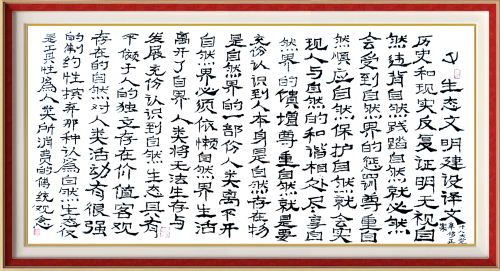 生态文明建设译文
历史和现实反复证明无视自
然违背自然践踏自然就必然
会受到自然界的惩罚尊重自
然顺应自然保护自然就会实
现人与自然的和谐相处尽享自
然界的馈增尊重自然就是要
充份认识到人本身是自然存在物
是自然界的一部份人类离不开
自然界必须依懒自然界生活
离开了自界人类将无法生存与
发展充份认识到自然生态具有
不依于人的独立存在价值客观
存在的自然对人类活动有很强
的制约性摈弃那种认为自然生态仅
是工具性为人类所消费的传统观念